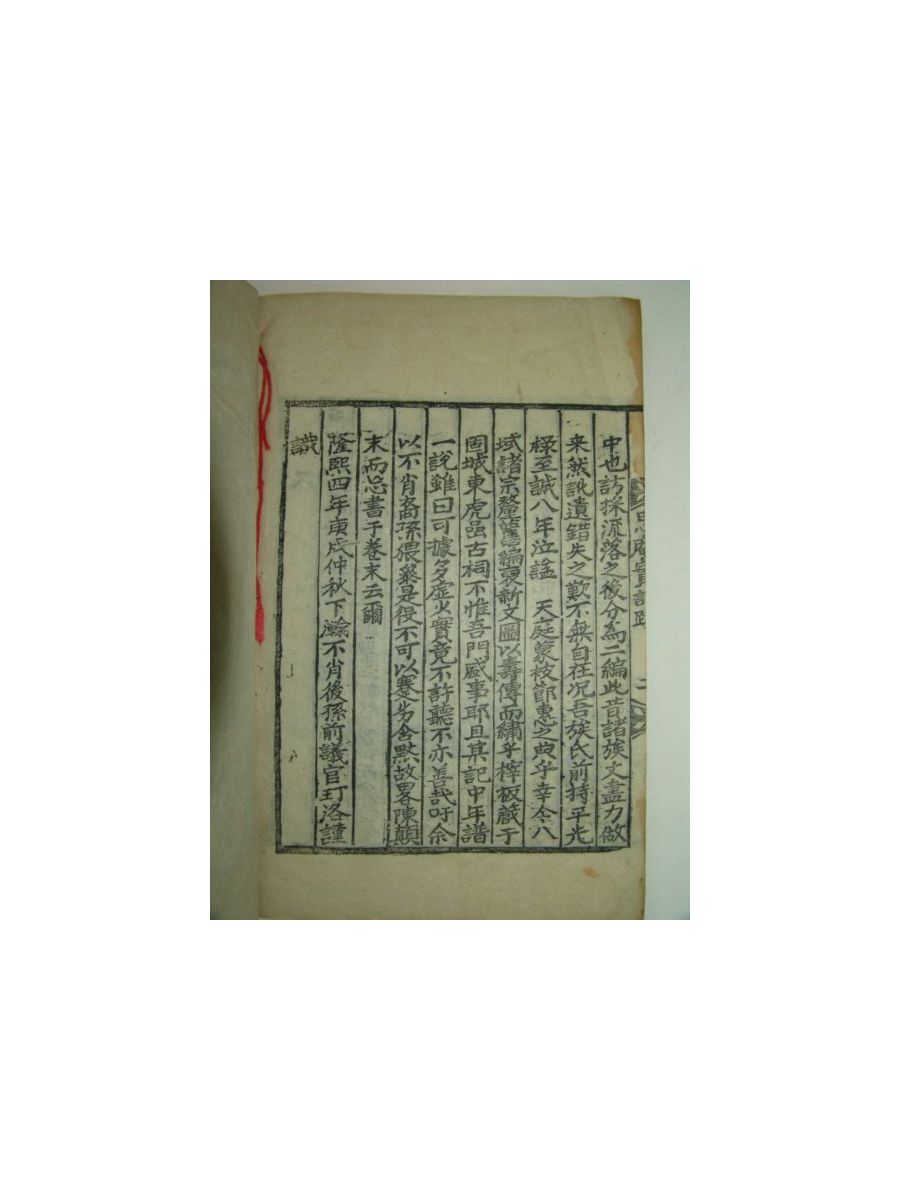 忠庵實記跋 二
中也訪採流落之後分為二編此昔諸族丈盡力做
来然訛遺錯失之歎不無自在况吾族氏前持平光
祿至誠八年泣謐 天庭蒙被節惠之典乎幸今八
域諸宗釐舊編裒新文圖以壽傳而繡乎榟板藏于
固城東虎邑古祠不惟吾門盛事耶且某記中年譜
一說雖曰可據多虛少實竟不許聽不亦善哉吁余
以不肖裔孫猥叅是役不可以蹇劣含默故畧陳顛
末而忘書于卷末云爾
隆熙四年庚戌仲秋下澣不肖後孫前議官玎洛謹
識